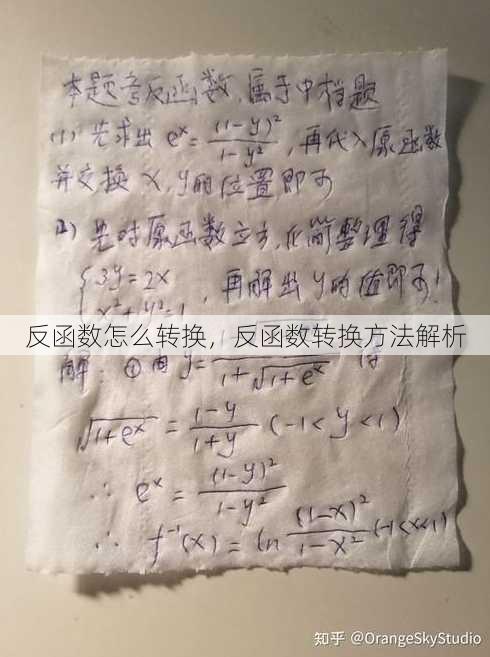 本题考反函数,属于中档题
(1) 先求出 eˣ = (1-y)²/(1-y²), 再代入原函数
并交换 x, y的位置即可
先对原函数立方,化简整理得
{3y=2x
x²+y²=1, 再解出 y的值即可!
反函数怎么转换，反函数转换方法解析
解: ①由 y= /(1+√(1+eˣ)) 得
√(1+eˣ) = (1-y)/(1+y) (-1<y<1)
∴ eˣ = (1-y)²/(1-y²)
∴ f⁻¹(x) = ln (1-x)²/(1-x²) (-1<x<1)
知乎 @OrangeSkyStudio